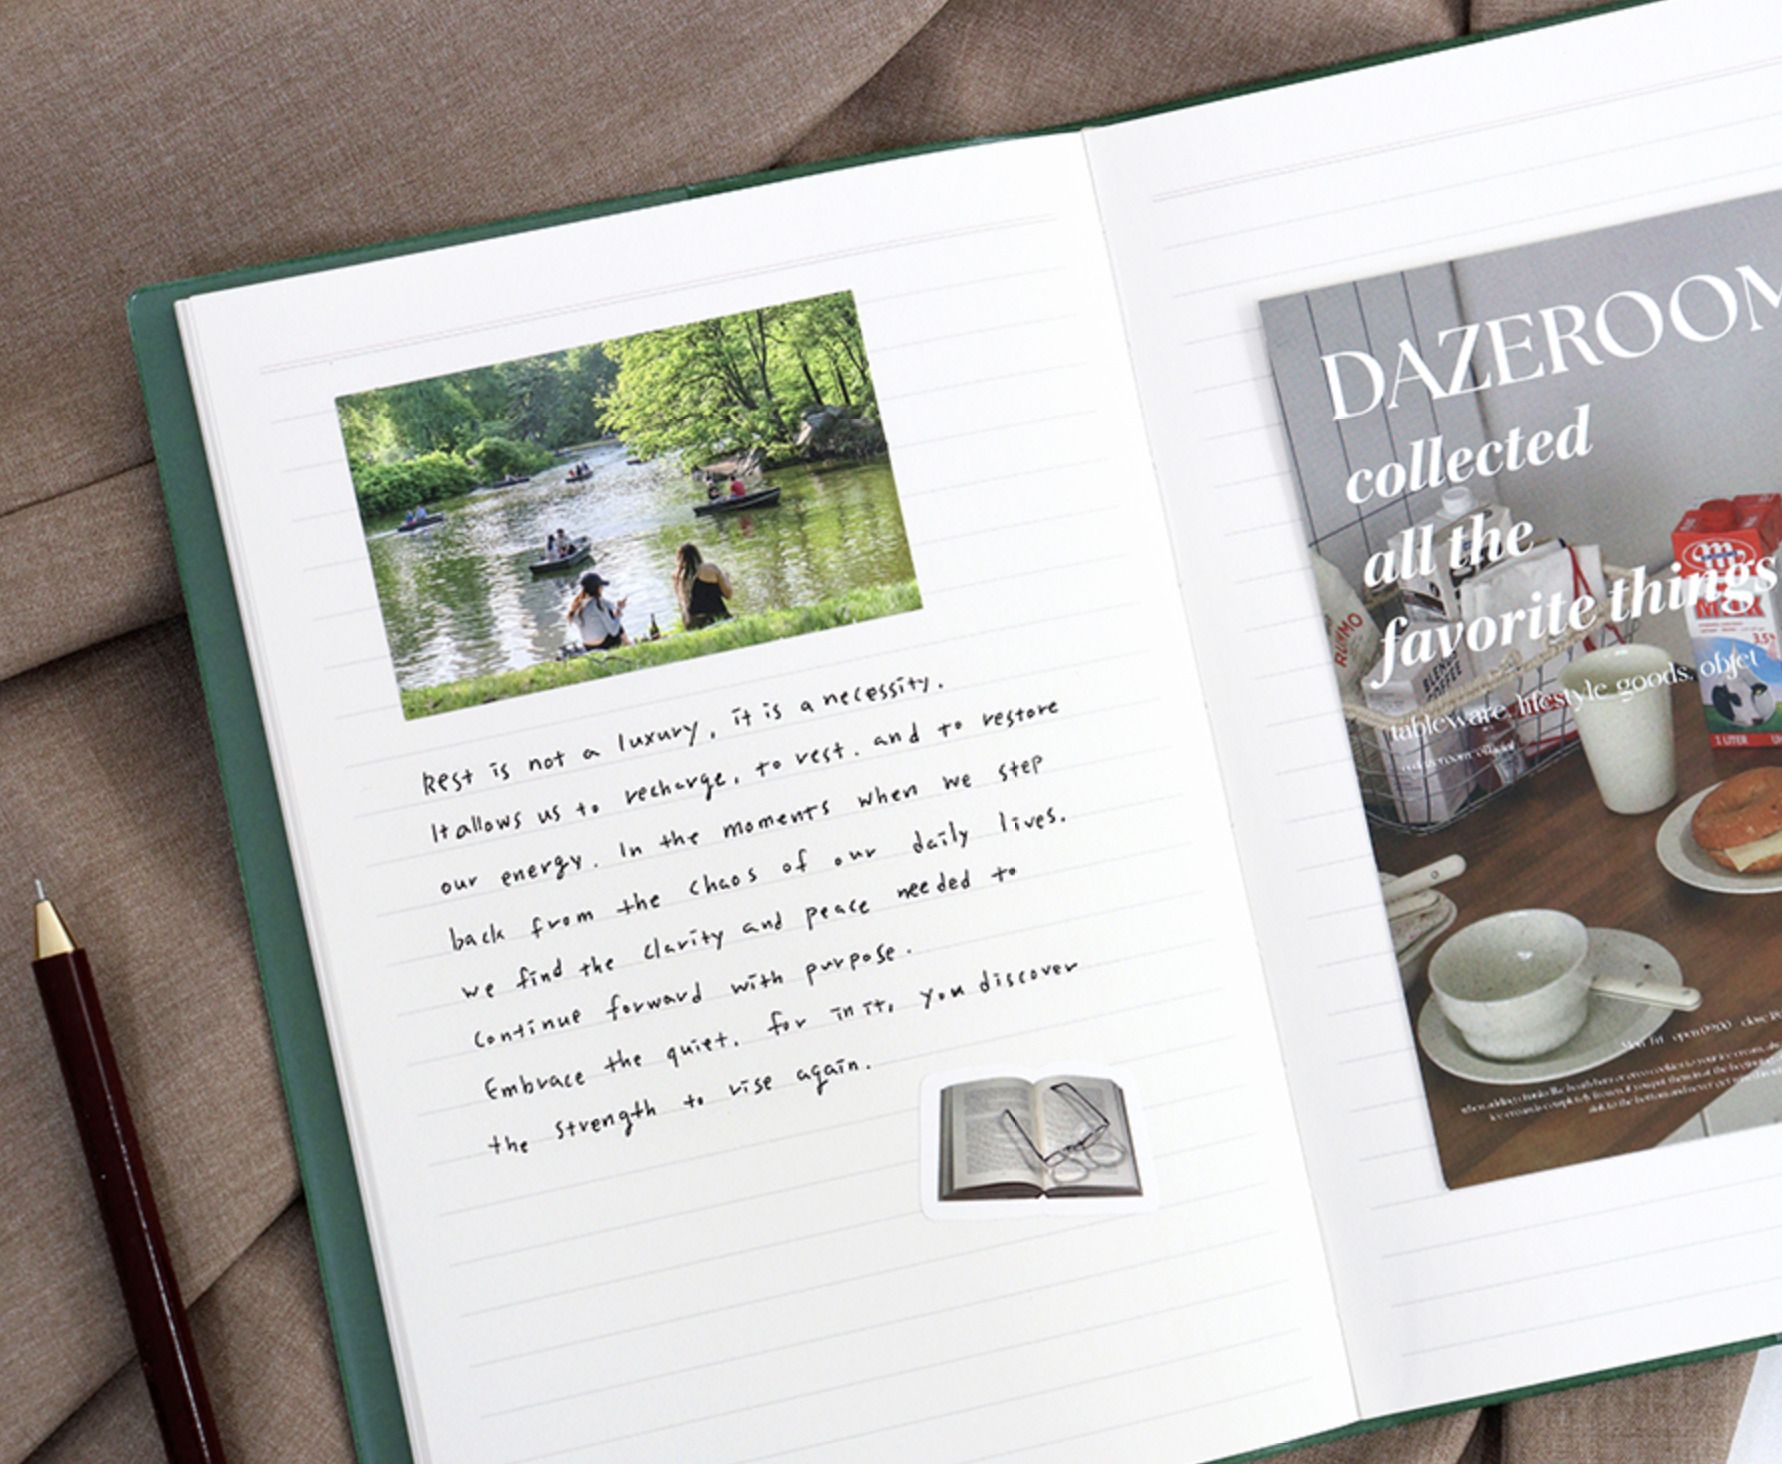 Rest is not a luxury, it is a necessity.
It allows us to recharge, to rest. and to restore
our energy. In the moments when we step
back from the chaos of our daily lives.
we find the clarity and peace needed to
Continue forward with purpose.
Embrace the quiet. for in it, you discover
the strength to rise again.
DAZEROOM
collected
all the
favorite things
tableware, lifestyle goods, objet
RUMMO
BLEND
COFFEE
MILK
3,5
1 LITER